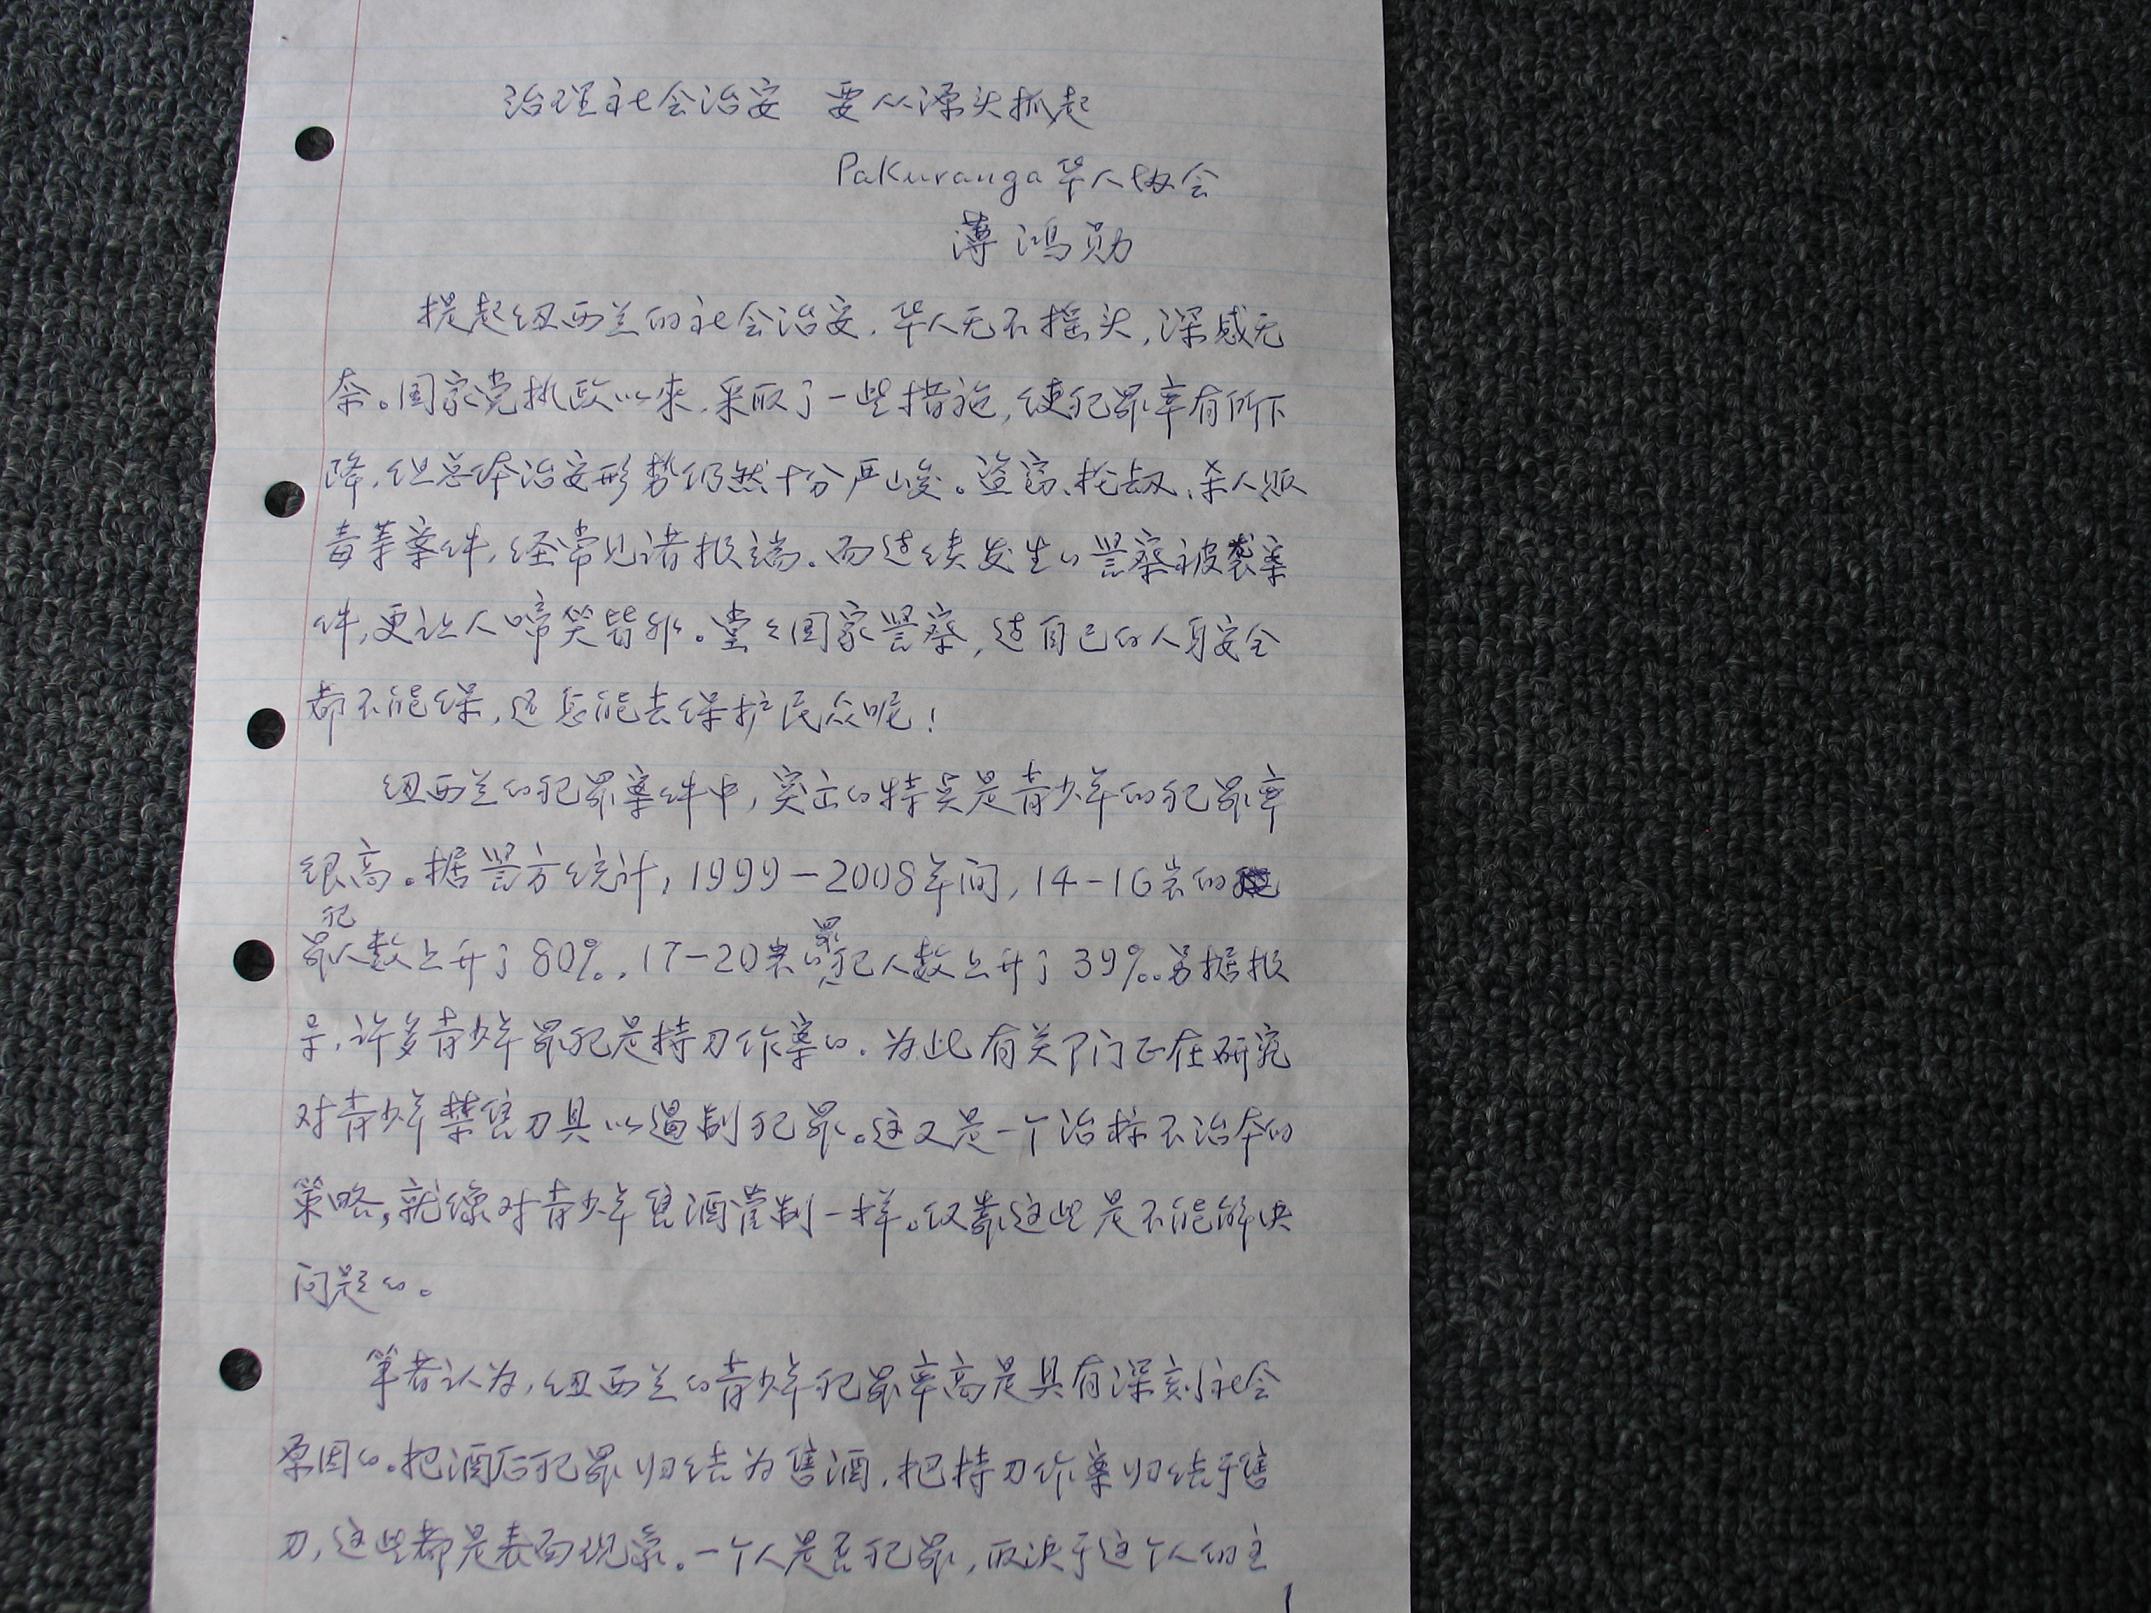 治理社会治安 要从源头抓起
Pakuranga华人协会
薄鸿勋
提起纽西兰的社会治安，华人无不摇头，深感无
奈。国家党执政以来，采取了一些措施，使犯罪率有所下
降，但总体治安形势仍然十分严峻。盗窃、抢劫、杀人贩
毒等案件，经常见诸报端。而连续发生的警察被袭案
件，更让人啼笑皆非。堂堂国家警察，连自己的人身安全
都不能保，还怎能去保护民众呢！
纽西兰的犯罪案件中，突出的特点是青少年的犯罪率
很高。据警方统计，1999－2008年间，14－16岁的
犯罪人数上升了80%，17－20岁的罪犯人数上升了39%。另据报
导，许多青少年罪犯是持刀作案的。为此有关部门正在研究
对青少年禁售刀具以遏制犯罪。这又是一个治标不治本的
策略，就像对青少年售酒管制一样。仅靠这些是不能解决
问题的。
笔者认为，纽西兰的青少年犯罪率高是具有深刻社会
原因的。把酒后犯罪归结为售酒，把持刀作案归结于售
刀，这些都是表面现象。一个人是否犯罪，取决于这个人的主
1